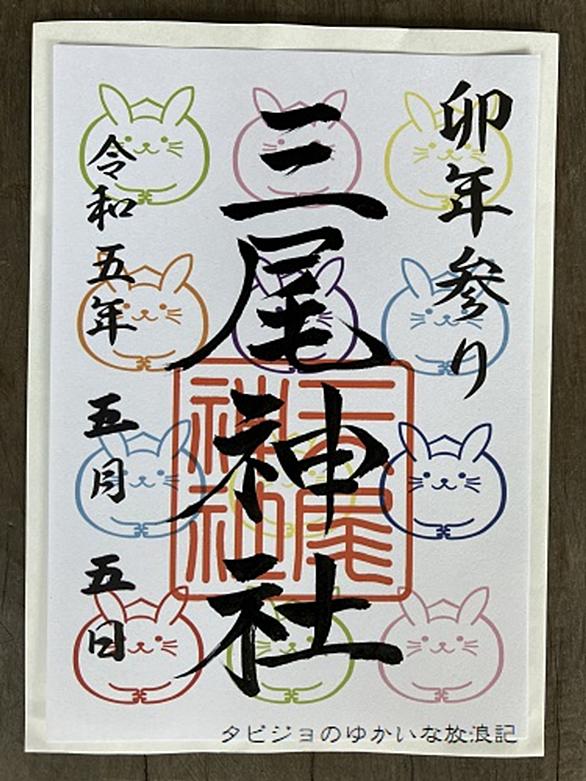 卯年参り
三尾神社
三尾神社
令和五年 五月 五日
タビジョのゆかいな放浪記